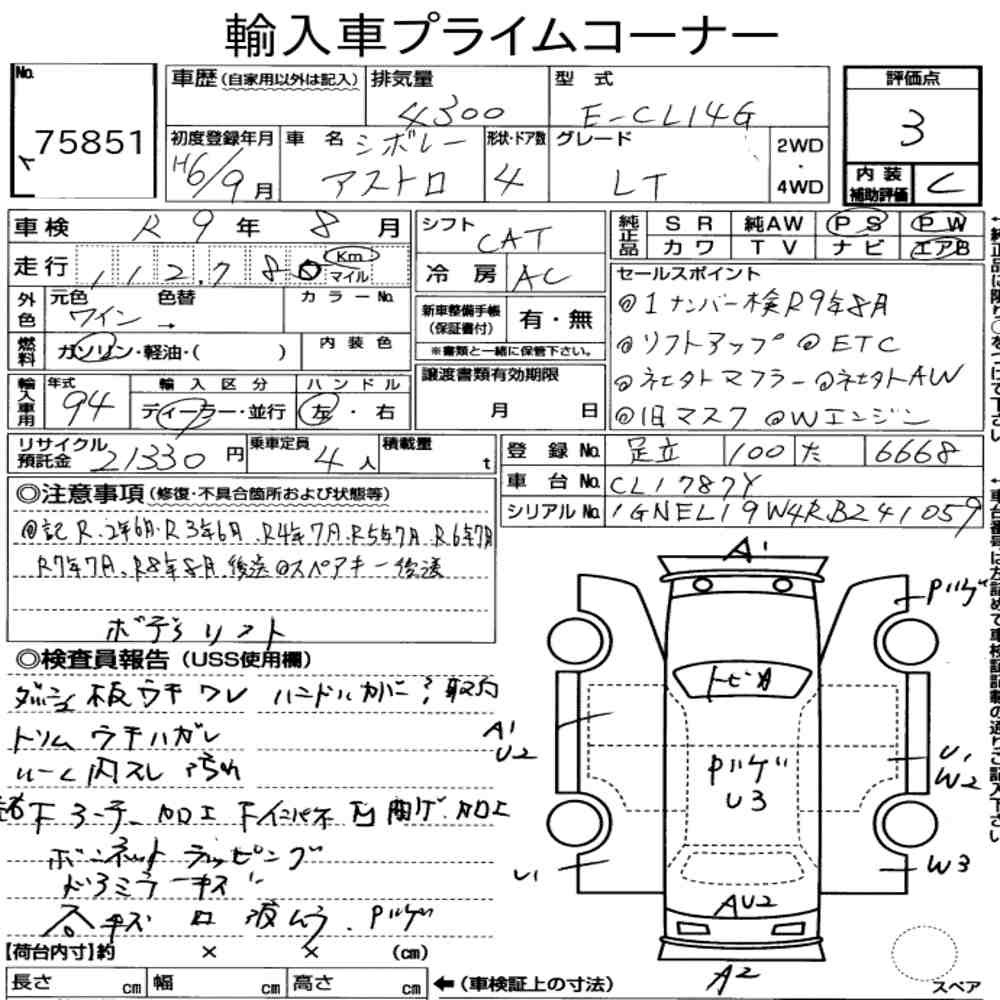 輸入車プライムコーナー
No.
75851
車歴(自家用以外は記入)
排気量
4300
型 式
E-CL14G
評価点
3
初度登録年月
H6/9月
車 名
シボレー
アストロ
形状・ドア数
4
グレード
LT
2WD
・
4WD
内 装
補助評価
C
車検 R 9 年 8 月
シフト
CAT
純正品
SR 純AW PS PW
カワ TV ナビ エアB
走行 112,780 Km マイル
冷 房 AC
セールスポイント
@1ナンバー検R9年8月
@リフトアップ @ETC
@社外マフラー@社外AW
@旧マスク @Wエンジン
外色
元色 色替 カラーNo.
ワイン →
新車整備手帳
(保証書付)
有・無
※書類と一緒に保管下さい。
燃料
ガソリン・軽油・( )
内 装 色
輸入車用
年式
94
輸入区分
ディーラー・並行
ハンドル
左・右
譲渡書類有効期限
月 日
リサイクル
預託金
21330円
乗車定員
4人
積載量
t
登 録 No. 足立 100 た 6668
車 台 No. CL1787Y
シリアル No. 1GNEL19W4RB241059
◎注意事項(修復・不具合箇所および状態等)
@記R.2年6月.R3年6月 R4年7月.R5年7月 R6年7月
R7年7月、R8年8月 後送 @スペアキー後渡
ボデーリフト
◎検査員報告(USS使用欄)
ダッシュ板ウキ ワレ ハンドルカバー 取付
トリム ウキ ハガレ
シート内スレ 汚れ
下コーナー加工
加工
ボンネットラッピング
ドアミラーキズ
キズ
Pハゲ
A1
Pハゲ
トビA
A1
U2
Pハゲ
U3
U1
W2
U1
W3
AU2
A2
スペア
【荷台内寸】約 × × (cm)
長さ cm 幅 cm 高さ cm ←(車検証上の寸法)